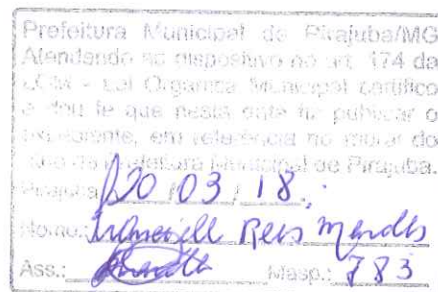 Prefeitura Municipal de Pirajuba/MG
Atendendo ao dispositivo no art. 174 da
LOM - Lei Orgânica Municipal certifico
e dou fé que nesta data fiz publicar o
expediente, em referência no mural do
da Prefeitura Municipal de Pirajuba.
Pirajuba 20 / 03 / 18
Nome: Reis Mendes
Ass.: Masp.: 783